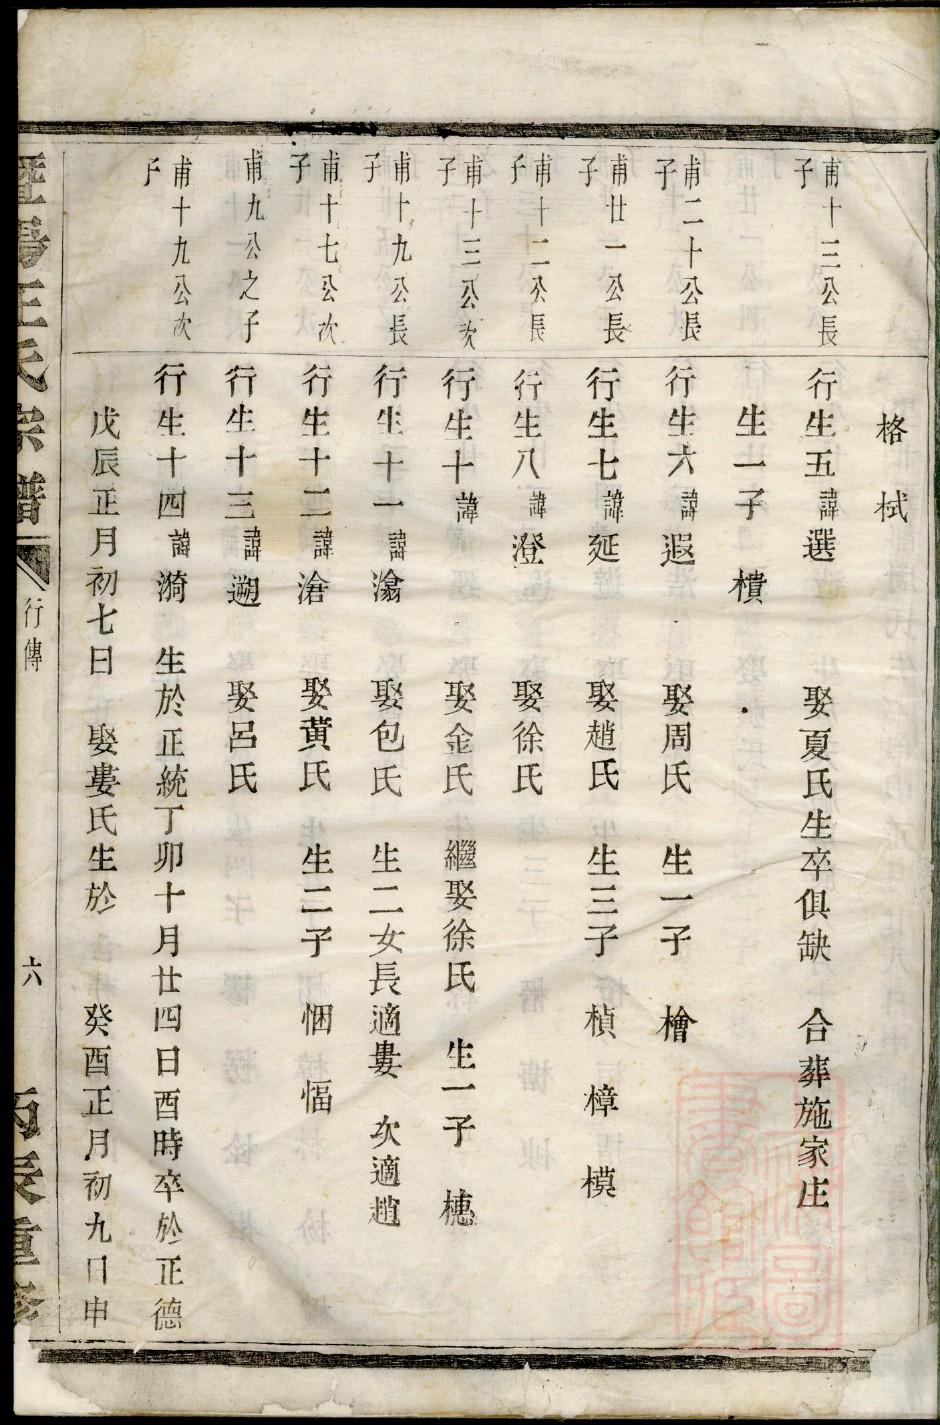 格 栻
甫十三公長子
行生五諱選 娶夏氏生卒俱缺 合葬施家庄
生一子 樻
甫二十公長子
行生六諱遐 娶周氏 生一子 檜
甫廿一公長子
行生七諱延 娶趙氏 生三子 楨 樟 模
甫十二公長子
行生八諱澄 娶徐氏
甫十三公次子
行生十諱 娶金氏 繼娶徐氏 生一子 橞
甫十九公長子
行生十一諱潝 娶包氏 生二女長適婁 次適趙
甫十七公次子
行生十二諱滄 娶黃氏 生二子 悃 愊
甫九公之子
行生十三諱遡 娶呂氏
甫十九公次子
行生十四諱漪 生於正統丁卯十月廿四日酉時卒於正德
戊辰正月初七日 娶婁氏生於 癸酉正月初九日申
暨陽王氏宗譜 行傳 六 丙辰重修